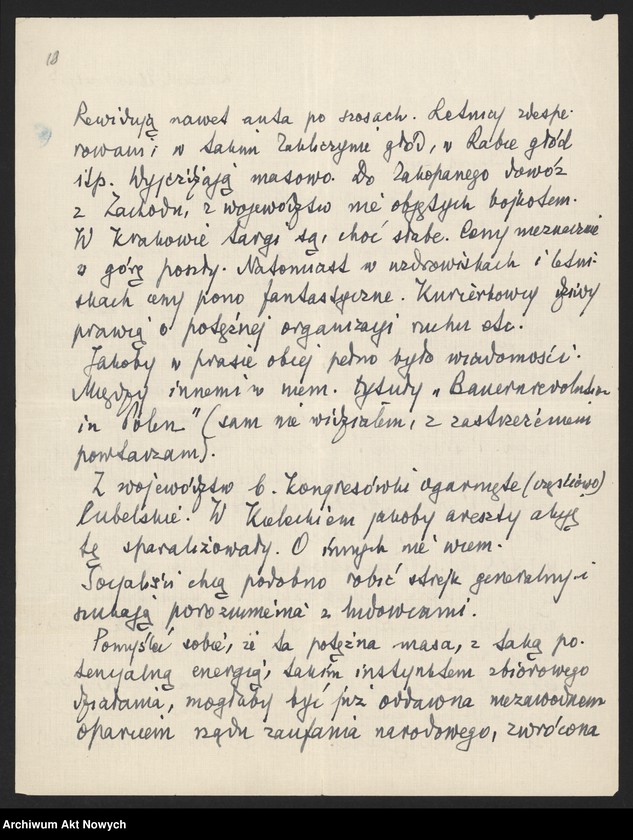 18
Rewidują nawet auta po szosach. Letnicy zdespe-
rowani; w takim Zakliczynie głód, w Rabce głód
itp. Wyjeżdżają masowo. Do Zakopanego dowóz
z Zachodu, z województw nie objętych bojkotem.
W Krakowie targi są, choć słabe. Ceny nieznacznie
w górę poszły. Natomiast w uzdrowiskach i letni-
skach ceny pono fantastyczne. Kurierkowcy dziwy
prawią o potężnej organizacji ruchu etc.
Jakoby w prasie obcej pełno było wiadomości.
Między innemi w niem. tytuły „Bauernrevolution
in Polen" (sam nie widziałem, z zastrzeżeniem
powtarzam).
Z województw b. Kongresówki ogarnięte (częściowo)
Lubelskie. W Kieleckiem jakoby areszty akcję
tę sparaliżowały. O innych nie wiem.
Socjaliści chcą podobno robić strejk generalny i
szukają porozumienia z ludowcami.
Pomyśleć sobie, że ta potężna masa, z taką po-
tencjalną energią, takim instynktem zbiorowego
działania, mogłaby być już oddawna niezawodnem
oparciem rządu zaufania narodowego, zwrócona
Archiwum Akt Nowych